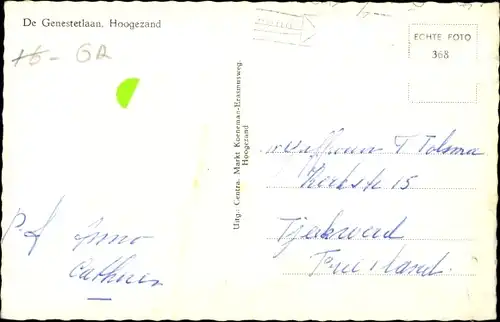 De Genestetlaan. Hoogezand
ECHTE FOTO
368
GR
Uitg.: Centra. Markt Koeneman-Erasmusweg.
Hoogezand
Mejuffrouw T Tolsma
Kerkstr 15
Tjerkwerd
Friesland.
P. f Anno